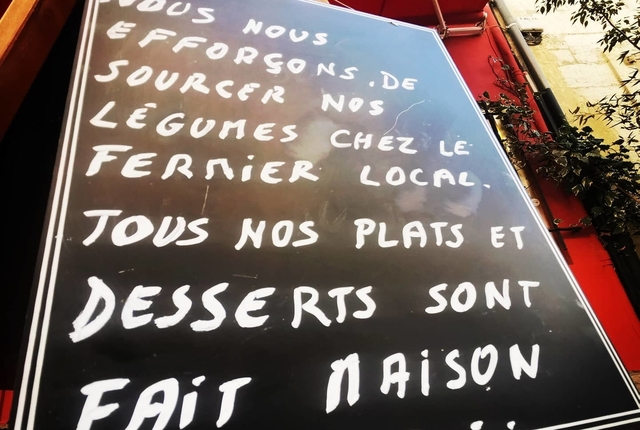 NOUS NOUS
EFFORÇONS.DE
SOURCER NOS
LÉGUMES CHEZ LE
FERMIER LOCAL.
TOUS NOS PLATS ET
DESSERTS SONT
FAiT MAiSON